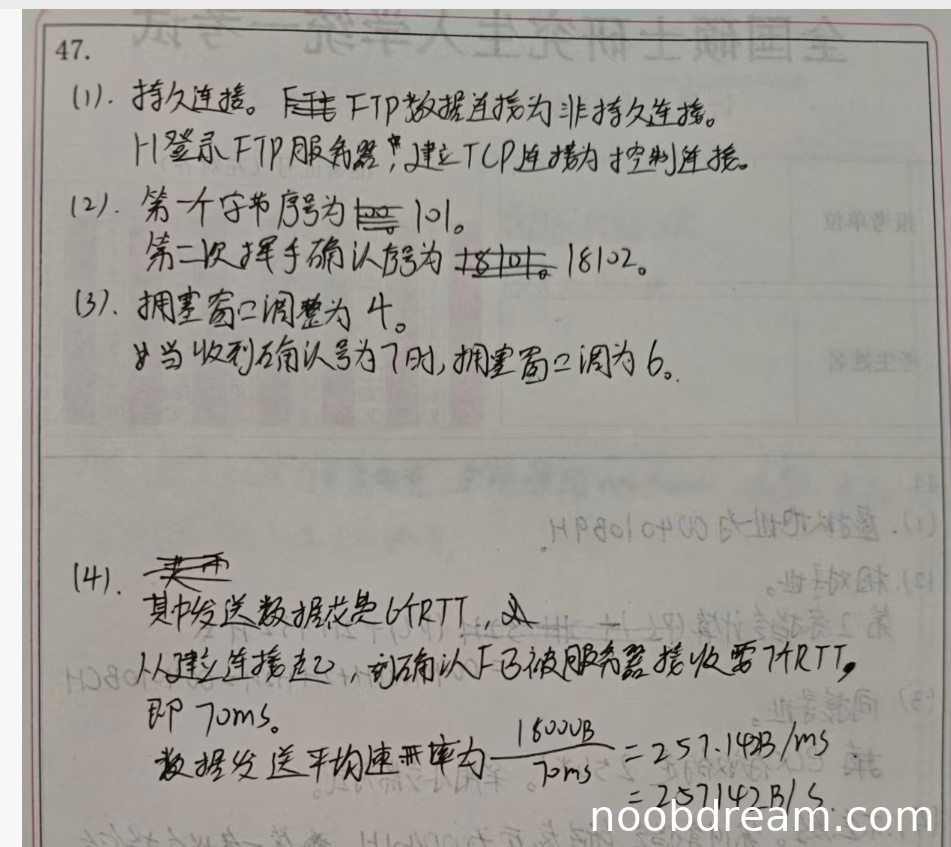 47.
(1). 持久连接。 FTP数据连接为非持久连接。
H登录FTP服务器时,建立TCP连接为控制连接。
(2). 第一个字节序号为 101。
第二次挥手确认序号为 18101。 18102。
(3). 拥塞窗口调整为 4。
当收到确认号为7时,拥塞窗口调为6。
(4).
其中发送数据花费6个RTT,
从建立连接起,到确认F已被服务器接收需7个RTT,
即 70ms。
数据发送平均速率为 18000B/70ms = 257.142B/ms
= 257142B/s.
报考单位
考生姓名
全国硕士研究生入学统一考试
noobdream.com